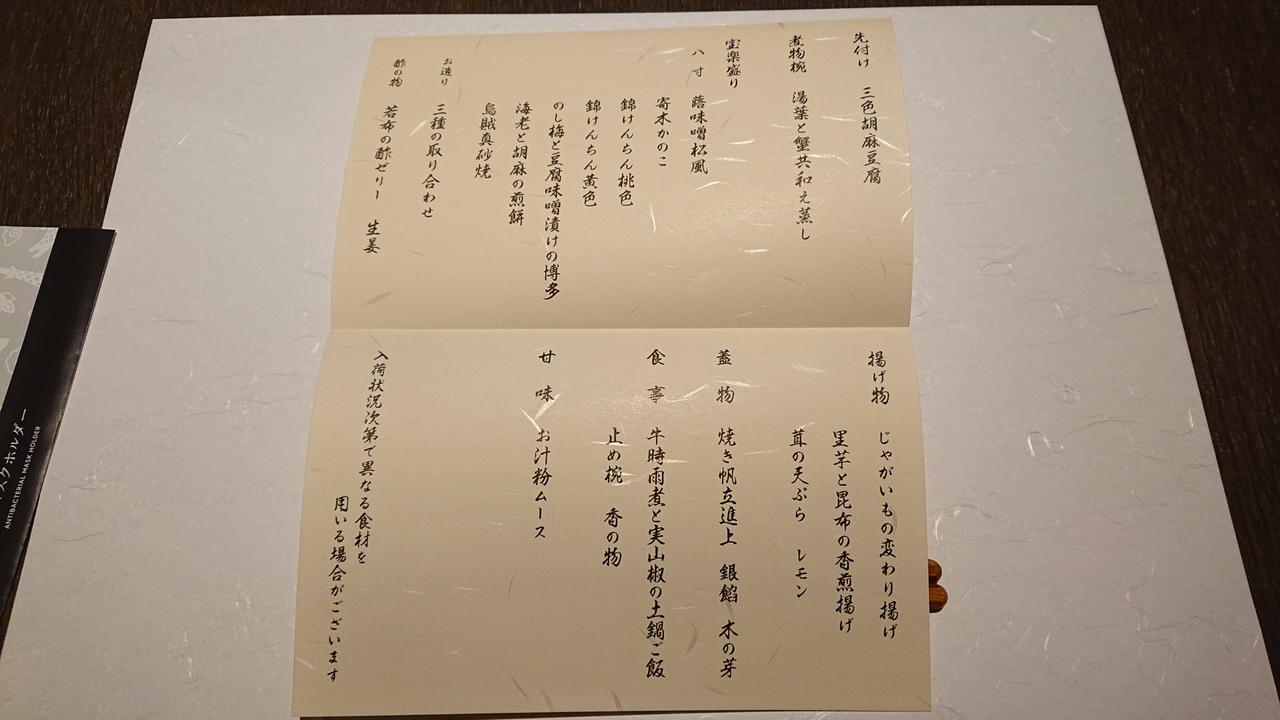 先付け　三色胡麻豆腐
煮物椀　湯葉と蟹共和え蒸し
宝楽盛り
八寸　蕗味噌松風
寄木かのこ
錦けんちん桃色
錦けんちん黄色
のし梅と豆腐味噌漬けの博多
海老と胡麻の煎餅
烏賊真砂焼
お造り　三種の取り合わせ
酢の物　若布の酢ゼリー　生姜
揚げ物　じゃがいもの変わり揚げ
里芋と昆布の香煎揚げ
茸の天ぷら　レモン
蓋物　焼き帆立進上　銀餡　木の芽
食事　牛時雨煮と実山椒の土鍋ご飯
止め椀　香の物
甘味　お汁粉ムース
入荷状況次第で異なる食材を
用いる場合がございます
スクホルダー
ANTIBACTERIAL MASK HOLDER